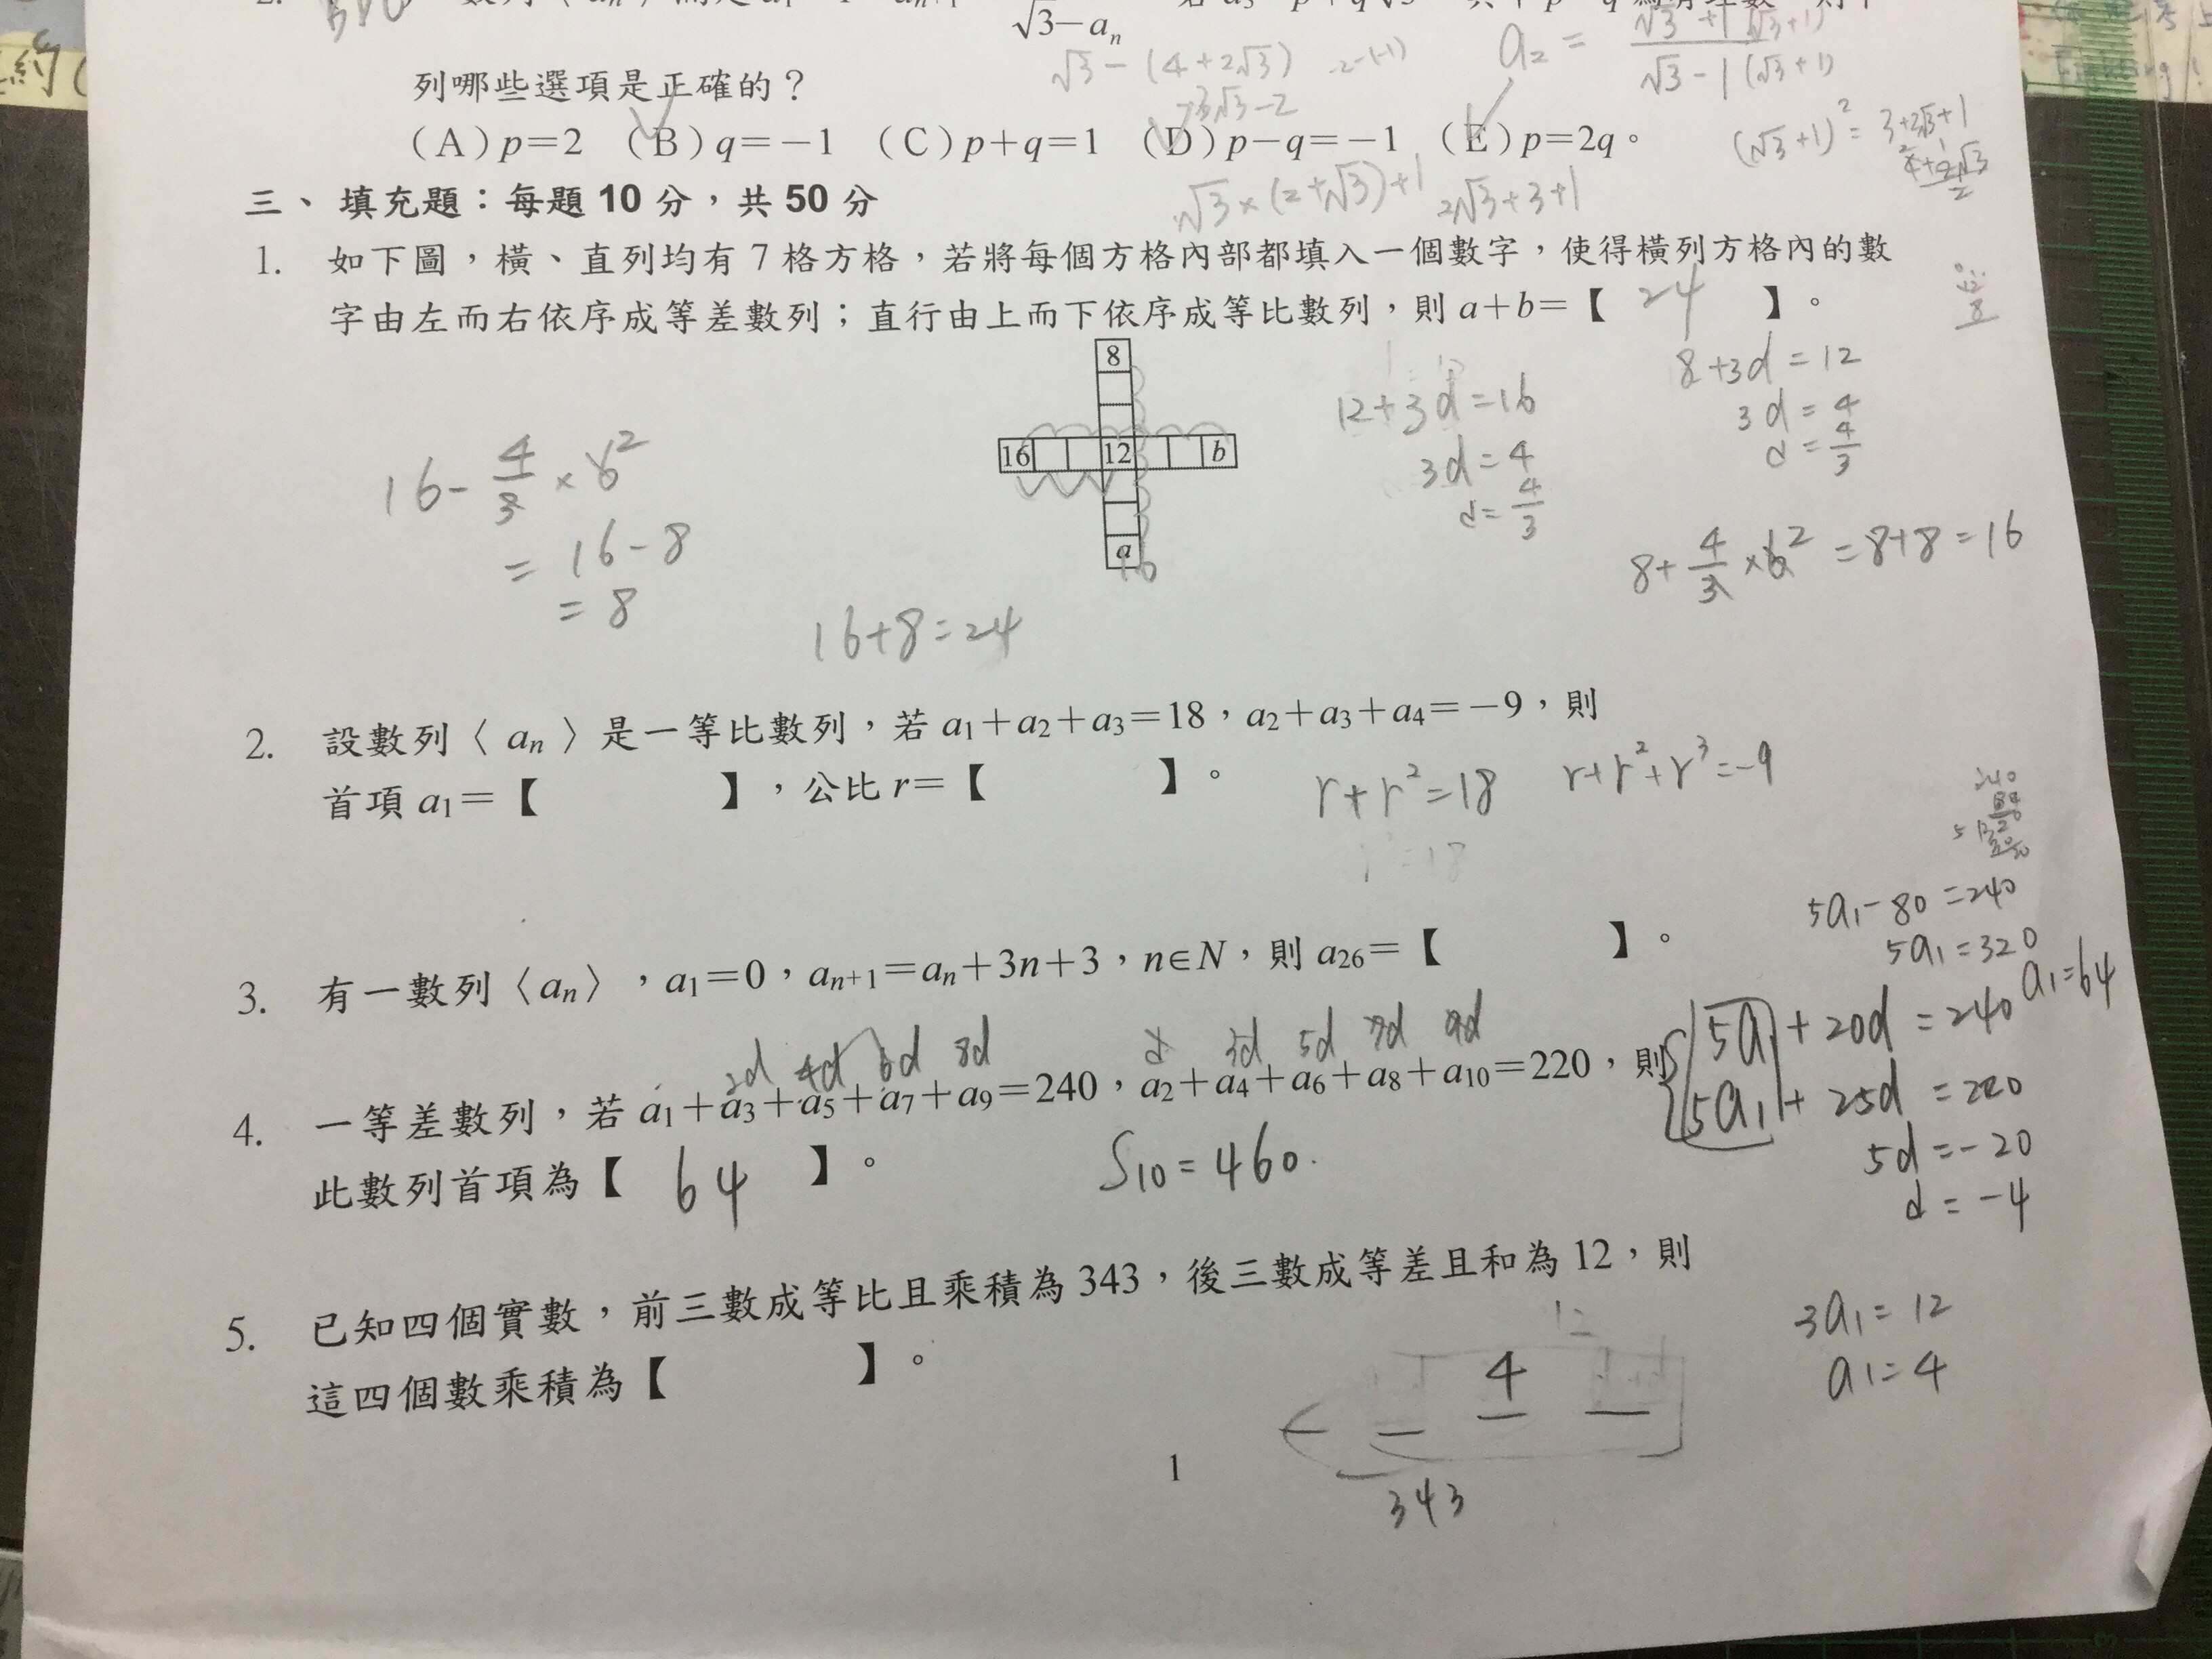 √3−aₙ
√3−(4+2√3)
a₂ =
列哪些選項是正確的?
(A)p=2 (B)q=−1 (C)p+q=1 (D)p−q=−1 (E)p=2q。
√3×(2+√3)+1 2√3+3+1
三、填充題:每題10分,共50分
1. 如下圖,橫、直列均有7格方格,若將每個方格內部都填入一個數字,使得橫列方格內的數
字由左而右依序成等差數列;直行由上而下依序成等比數列,則a+b=【 24 】。
8
16 12 b
a
16
16−4/3×6
=16−8
=8
16+8=24
12+3d=16
3d=4
d=4/3
8+3d=12
3d=4
d=4/3
8+4/3×6=8+8=16
2. 設數列〈aₙ〉是一等比數列,若a₁+a₂+a₃=18,a₂+a₃+a₄=−9,則
首項a₁=【 】,公比r=【 】。
r+r²=18 r+r²+r³=−9
3. 有一數列〈aₙ〉,a₁=0,aₙ₊₁=aₙ+3n+3,n∈N,則a₂₆=【 】。
5a₁−80=240
5a₁=320
a₁=64
2d 4d 6d 8d d 3d 5d 7d 9d
4. 一等差數列,若a₁+a₃+a₅+a₇+a₉=240,a₂+a₄+a₆+a₈+a₁₀=220,則
此數列首項為【 64 】。
S₁₀=460.
5a₁+20d=240
5a₁+25d=220
5d=−20
d=−4
5. 已知四個實數,前三數成等比且乘積為343,後三數成等差且和為12,則
這四個數乘積為【 】。
12
4
343
3a₁=12
a₁=4
1